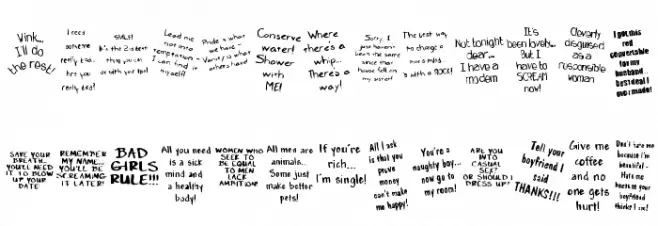 Wink...
I'll do
the rest!
really bad...
really bad!
SMILE!
It's the 2nd best
thing you can
do with your lips!
Lead me
not into
temptation -
I can find it
myself!
Pride is what
we have -
Vanity is what
others have!
Conserve
water!
Shower
with
ME!
Where
there's a
whip...
There's a
way!
Sorry, I
just haven't
been the same
since that
house fell on
my sister!
The best way
to change a
man's mind
is with a ROCK!
Not tonight
dear...
I have a
modem
It's
been lovely...
But I
have to
SCREAM
now!
Cleverly
disguised
as a
responsible
woman
I got this
red
convertable
for my
husband...
best deal I
ever made!
SAVE YOUR
BREATH...
YOU'LL NEED
IT TO BLOW
UP YOUR
DATE
REMEMBER
MY NAME...
YOU'LL BE
SCREAMING
IT LATER!
BAD
GIRLS
RULE!!!
All you need
is a sick
mind and
a healthy
body!
WOMEN WHO
SEEK TO
BE EQUAL
TO MEN
LACK
AMBITION!
All men are
animals...
Some just
make better
pets!
If you're
rich...
I'm single!
All I ask
is that you
prove
money
can't make
me happy!
You're a
naughty boy...
now go to
my room!
ARE YOU
INTO
CASUAL
SEX?
OR SHOULD I
DRESS UP?
Tell your
boyfriend I
said
THANKS!!!
Give me
coffee
and no
one gets
hurt!
Don't hate me
because I'm
beautiful...
Hate me
because your
boyfriend
thinks I am!